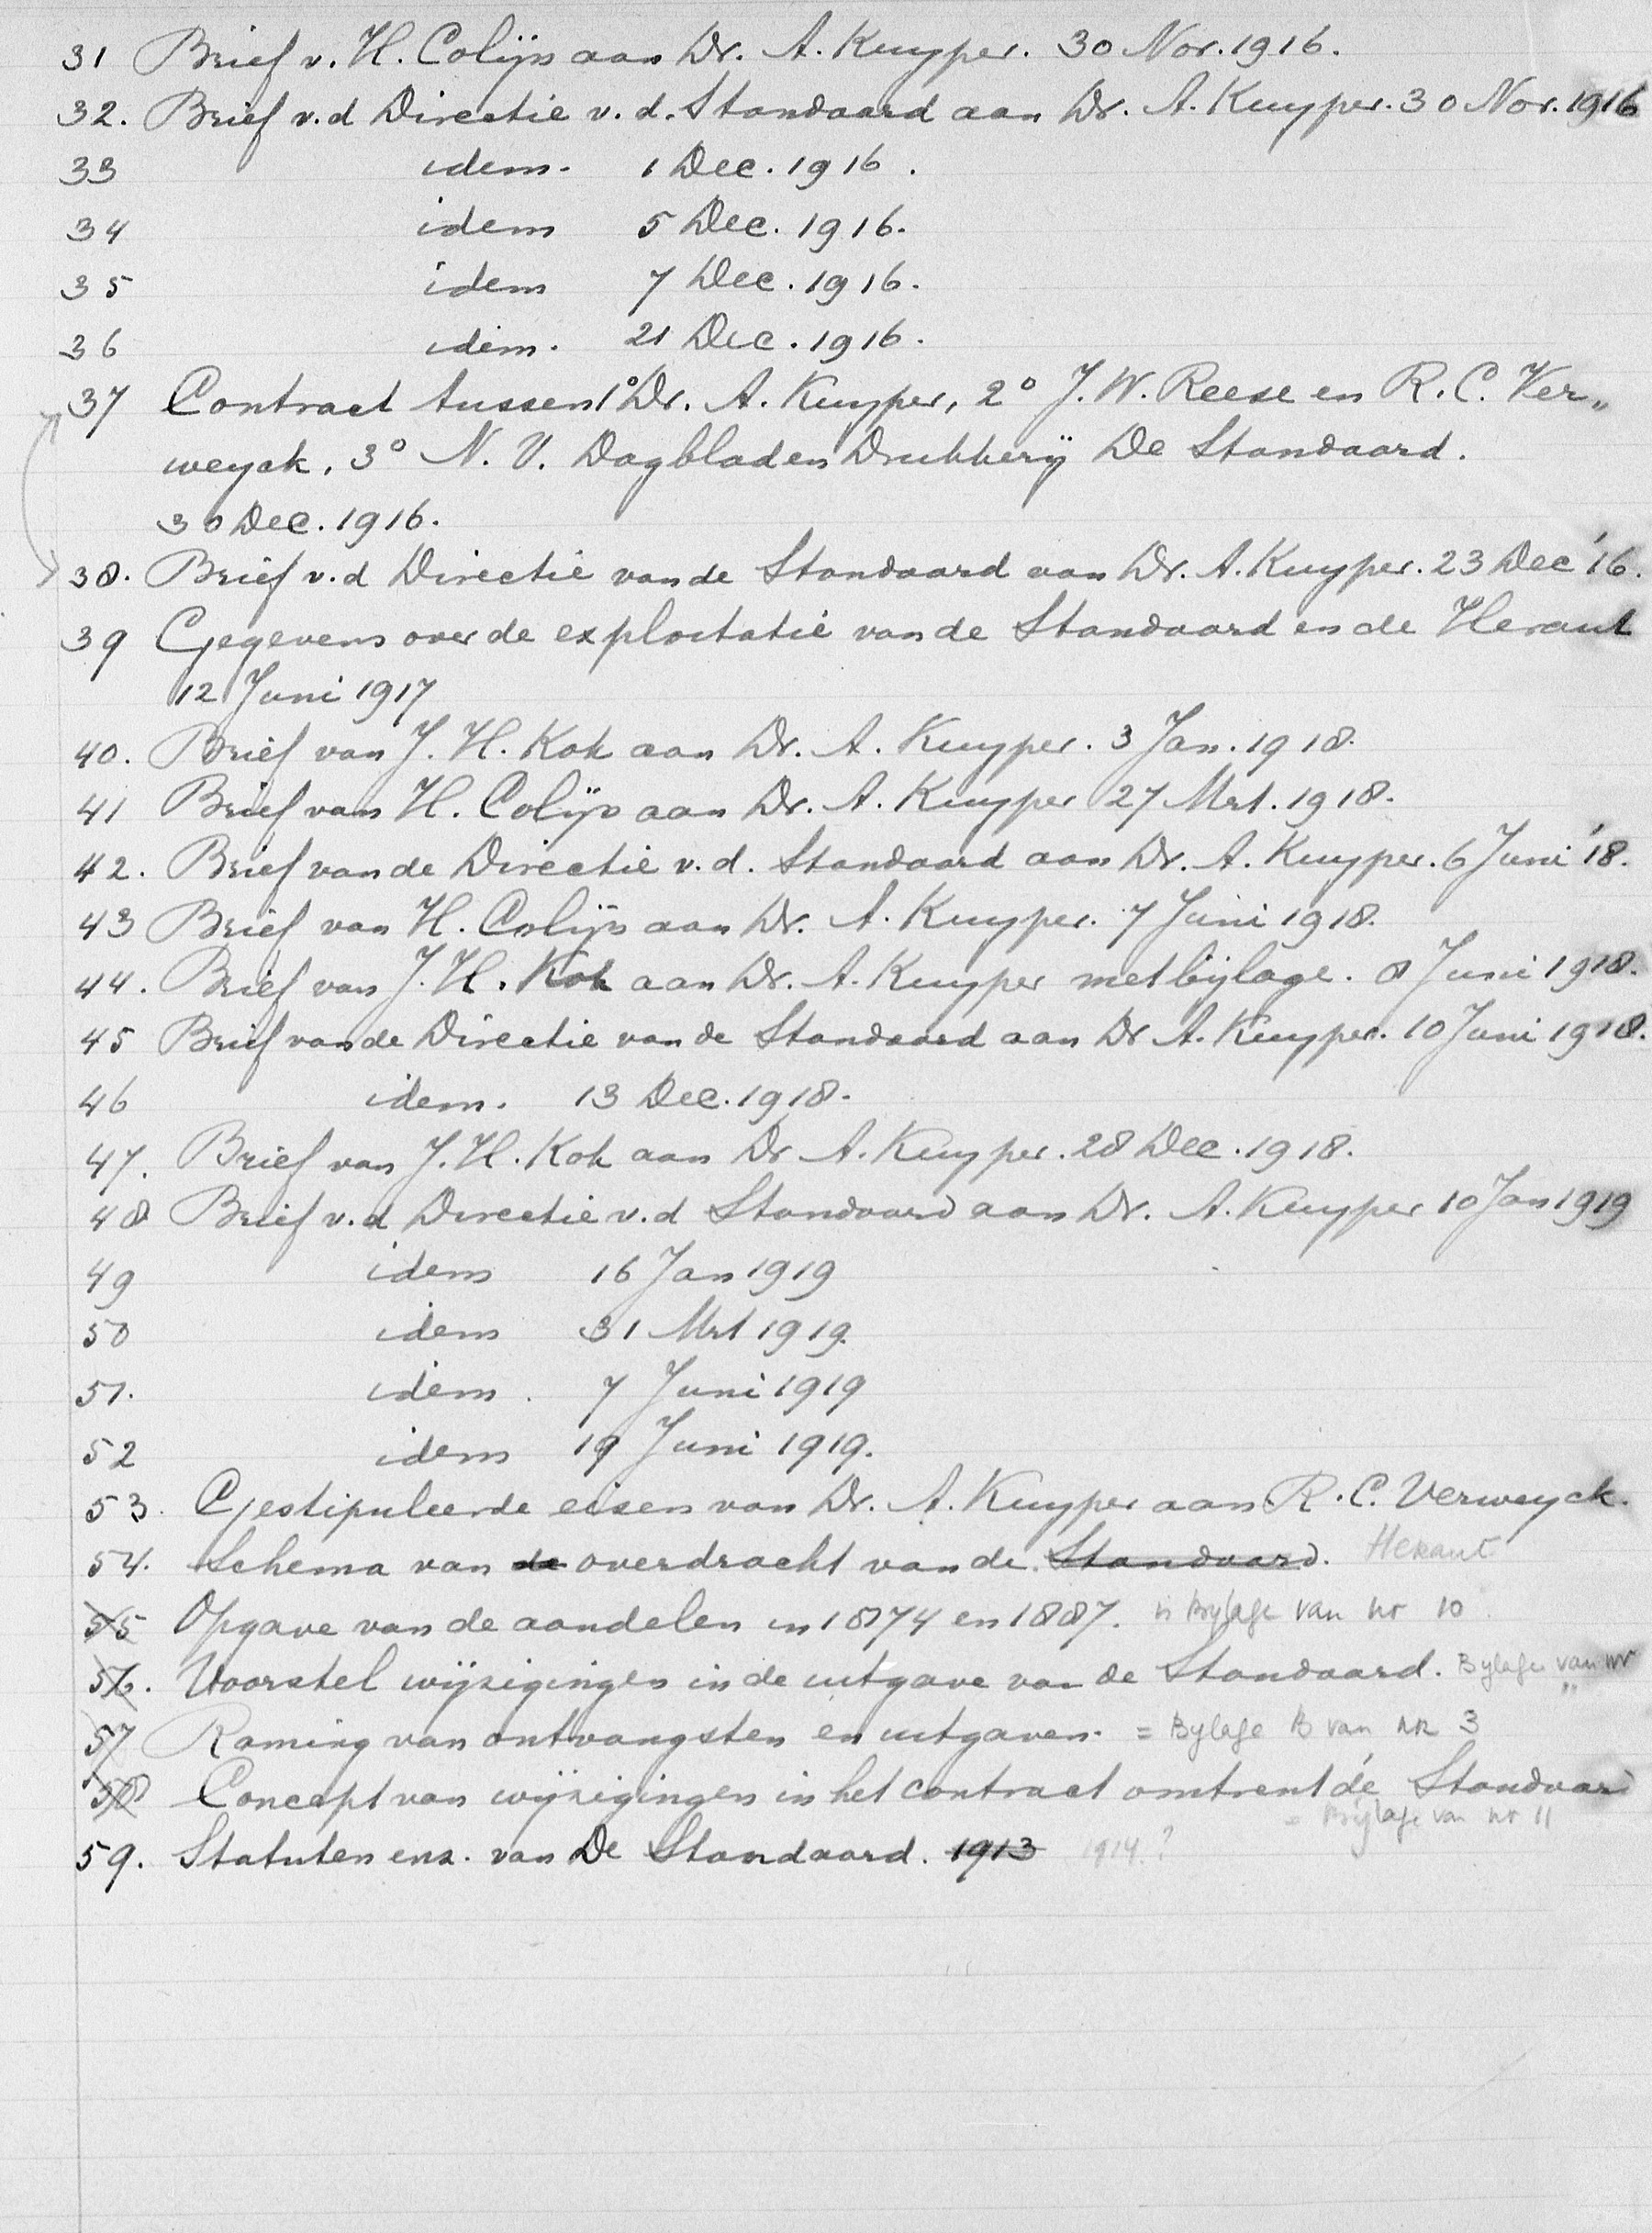 31 Brief v. H. Colijn aan Dr. A. Kuyper. 30 Nov. 1916.
32. Brief v.d Directie v.d. Standaard aan Dr. A. Kuyper. 30 Nov. 1916
33 idem. 1 Dec. 1916.
34 idem 5 Dec. 1916.
35 idem 7 Dec. 1916.
36 idem. 21 Dec. 1916.
37 Contract tussen 1° Dr. A. Kuyper, 2° J. W. Reese en R. C. Ver„
weyck, 3° N. V. Dagbladen Drukkerij De Standaard.
30 Dec. 1916.
38. Brief v.d Directie van de Standaard aan Dr. A. Kuyper. 23 Dec '16.
39 Gegevens over de exploitatie van de Standaard en de Heraut
12 Juni 1917
40. Brief van J. H. Kok aan Dr. A. Kuyper. 3 Jan. 1918.
41 Brief van H. Colijn aan Dr. A. Kuyper 27 Mrt. 1918.
42. Brief van de Directie v.d. Standaard aan Dr. A. Kuyper. 6 Juni '18.
43 Brief van H. Colijn aan Dr. A. Kuyper. 7 Juni 1918.
44. Brief van J. H. Kok aan Dr. A. Kuyper met bijlage. 8 Juni 1918.
45 Brief van de Directie van de Standaard aan Dr A. Kuyper. 10 Juni 1918.
46 idem. 13 Dec. 1918.
47. Brief van J. H. Kok aan Dr A. Kuyper. 28 Dec. 1918.
48 Brief v.d Directie v.d Standaard aan Dr. A. Kuyper 10 Jan 1919
49 idem 16 Jan 1919
50 idem 31 Mrt 1919.
51. idem. 7 Juni 1919
52 idem 19 Juni 1919.
53. Gestipuleerde eisen van Dr. A. Kuyper aan R. C. Verweyck.
54. Schema van de overdracht van de Standaard. Heraut
55 Opgave van de aandelen in 1874 en 1887. is Bylage van nr 10.
56. Voorstel wijzigingen in de uitgave van de Standaard. Bylage van nr
"
57 Raming van ontvangsten en uitgaven. = Bylage B van nr 3
58 Concept van wijzigingen in het contract omtrent de Standaard
= Bijlage van nr 11
59. Statuten enz. van De Standaard. 1913 1914.?